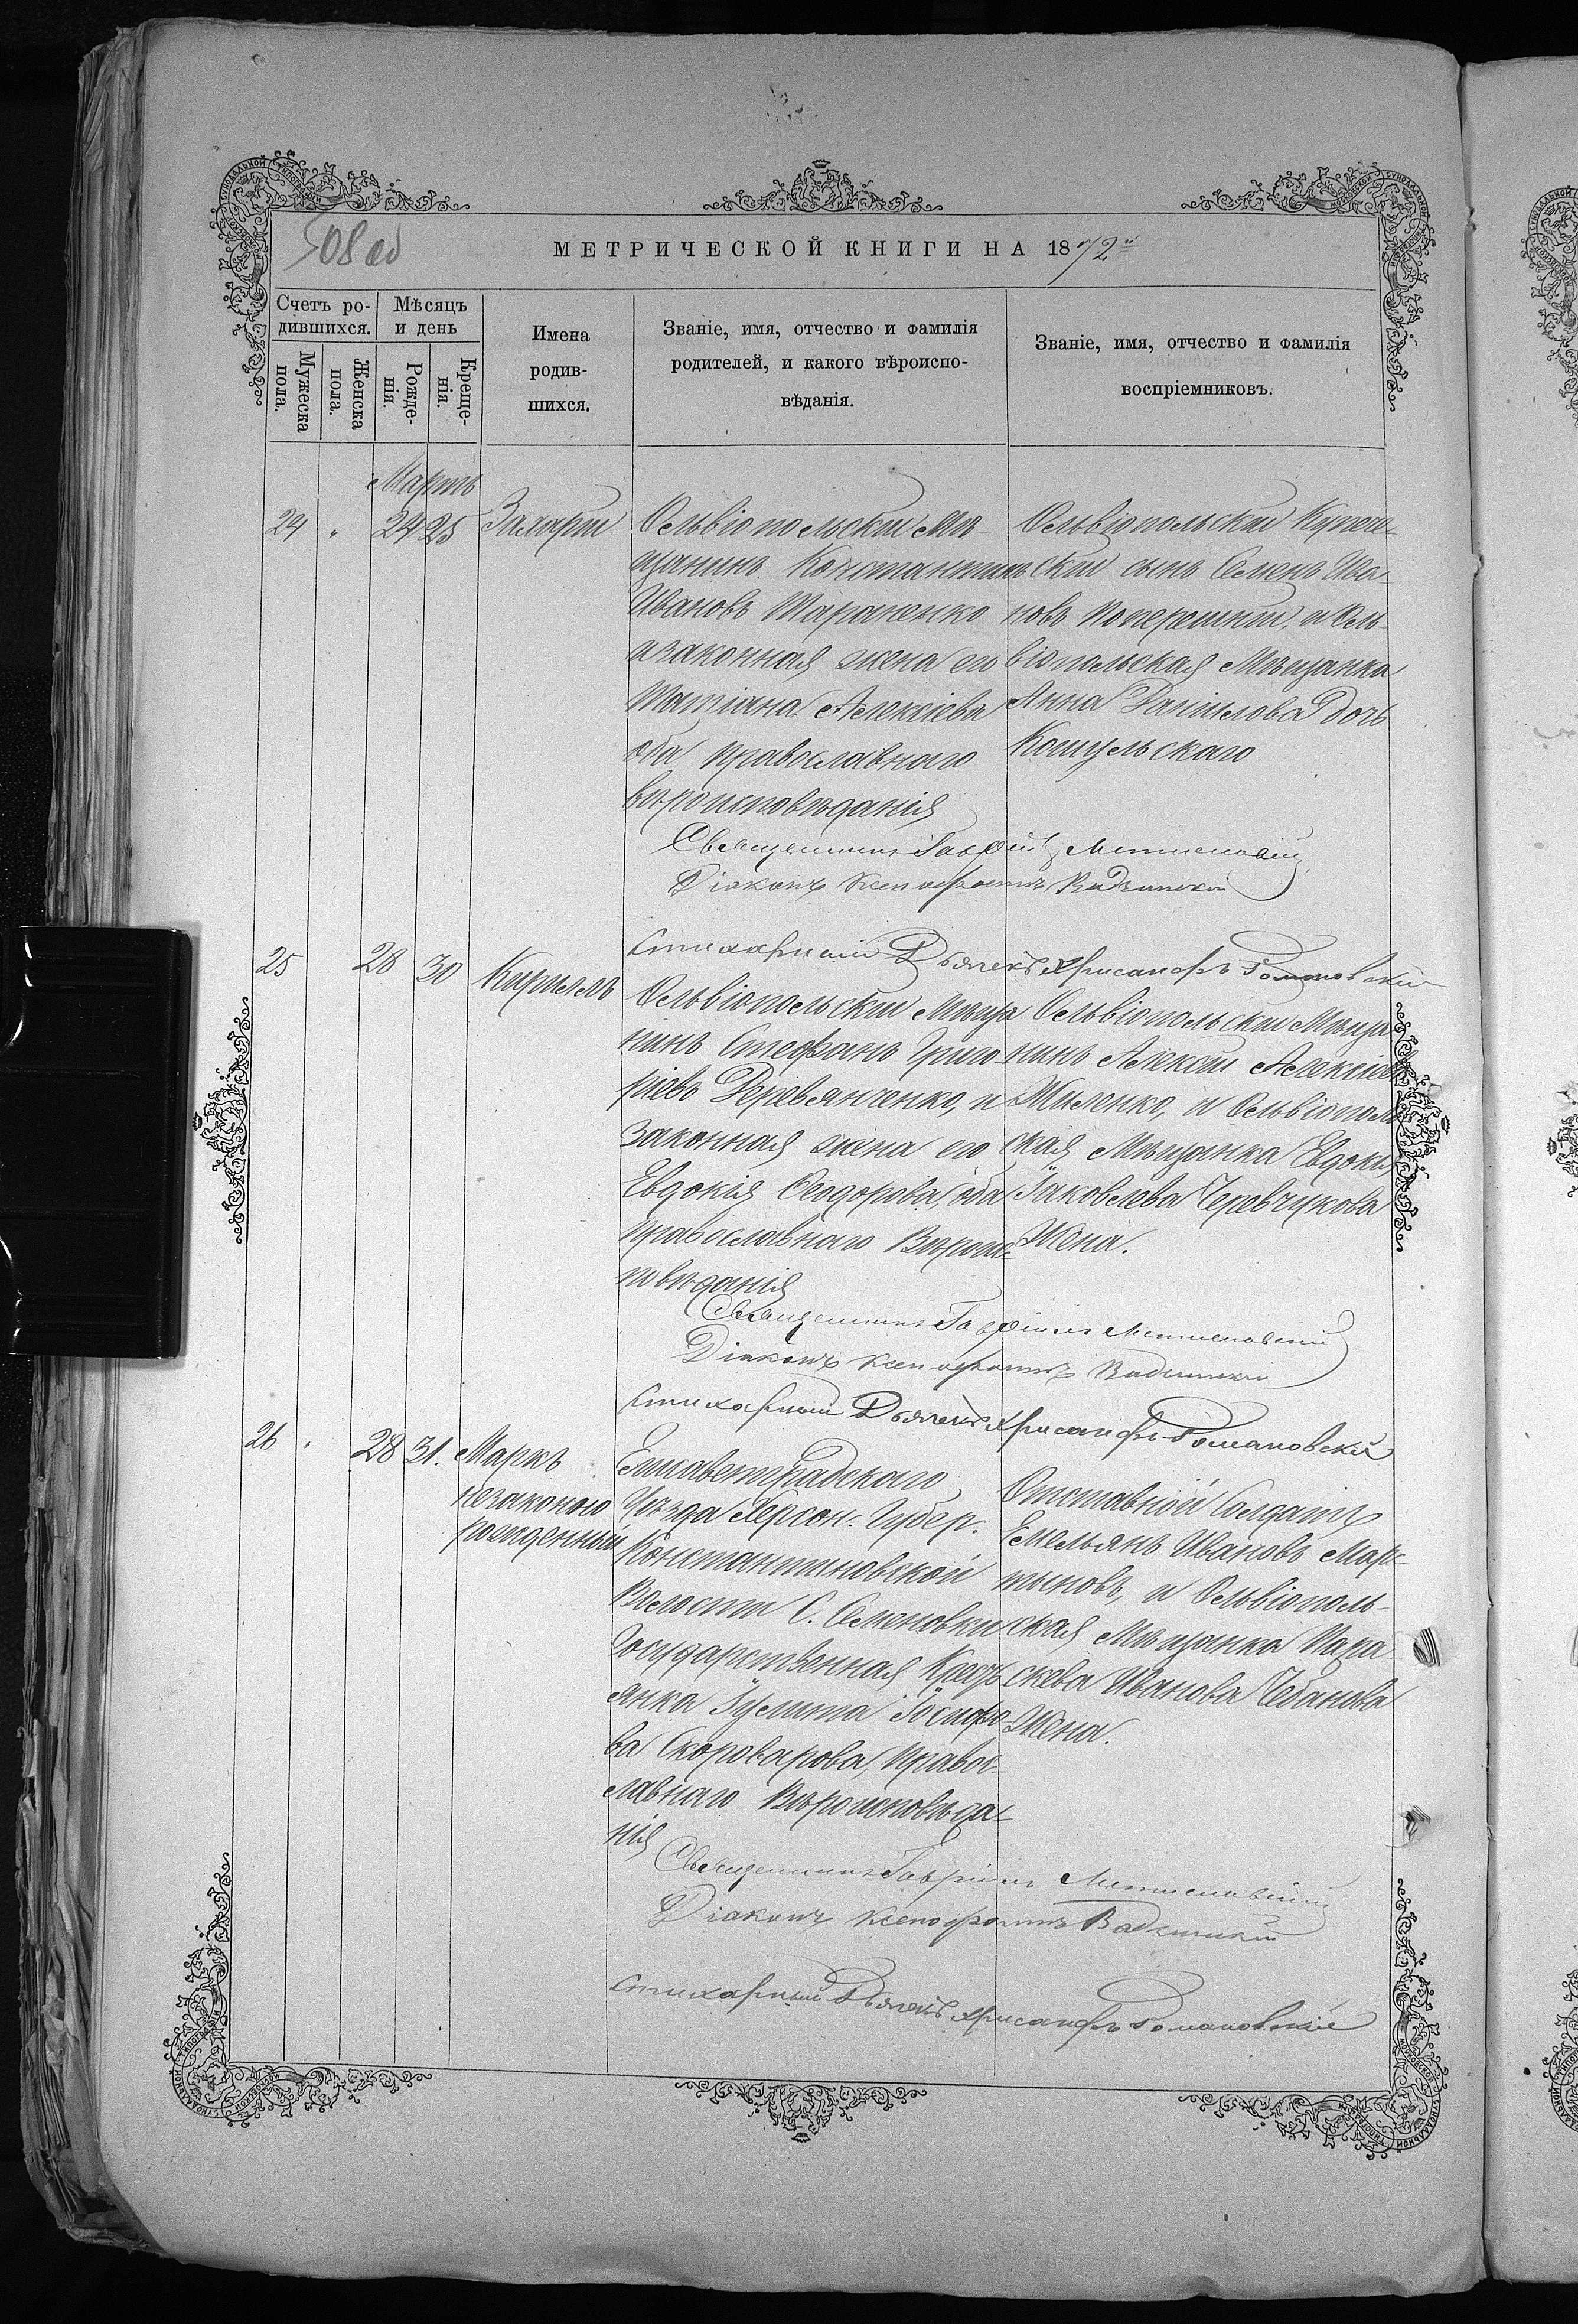 508 об
МЕТРИЧЕСКОЙ КНИГИ НА 1872й
Счетъ ро-
дившихся.
Мужеска
пола.
Женска
пола.
Мѣсяцъ
и день
Рожде-
нія.
Креще-
нія.
Имена
родив-
шихся.
Званіе, имя, отчество и фамилія
родителей, и какого вѣроиспо-
вѣданія.
Званіе, имя, отчество и фамилія
воспріемниковъ.
Мартъ
24 " 24 25
Захарій
Ольвіопольскій Мѣ-
щанинъ Константинъ
Ивановъ Тараненко
и законная жена его
Татіана Алексіева
оба православнаго
вѣроисповѣданія
Ольвіопольскій Купече-
скій сынъ Семенъ Ива-
новъ и Оль-
віопольская Мѣщанка
Анна Даніилова дочь
Кошульскаго
Священникъ Гавріилъ Мстиславскій
Діаконъ Ксенофонтъ
Стихарный Дьячекъ Хрисанфъ Романовскій
25 28 30
Кириллъ
Ольвіопольскій Мѣща
нинъ Стефанъ Григо-
ріевъ Деревянченко, и
законная жена его
Евдокія Ѳеодорова, оба
православнаго Вѣроис-
повѣданія
Ольвіопольскій Мѣща
нинъ Алексѣй Алексіевъ
Жиленко, и Ольвіополь
ская Мѣщанка Евдокія
Іаковлева Черевчукова
Жена.
Священникъ Гавріилъ Мстиславскій
Діаконъ Ксенофонтъ
Стихарный Дьячекъ Хрисанфъ Романовскій
26 " 28 31.
Маркъ
незаконо
рожденный
Елисаветградскаго
Уѣзда Херсон. Губер.
Константиновской
Волости С. Семеновки
Государственная Кресть
янка Іулита Іосифо
ва Скороварова, Правос-
лавнаго Вѣроисповѣда-
нія
Отставной Солдатъ
Емельянъ Ивановъ Мар-
тыновъ, и Ольвіополь-
ская Мѣщанка Пара-
скева Иванова Чебанова
Жена.
Священникъ Гавріилъ Мстиславскій
Діаконъ Ксенофонтъ
Стихарный Дьячекъ Хрисанфъ Романовскій